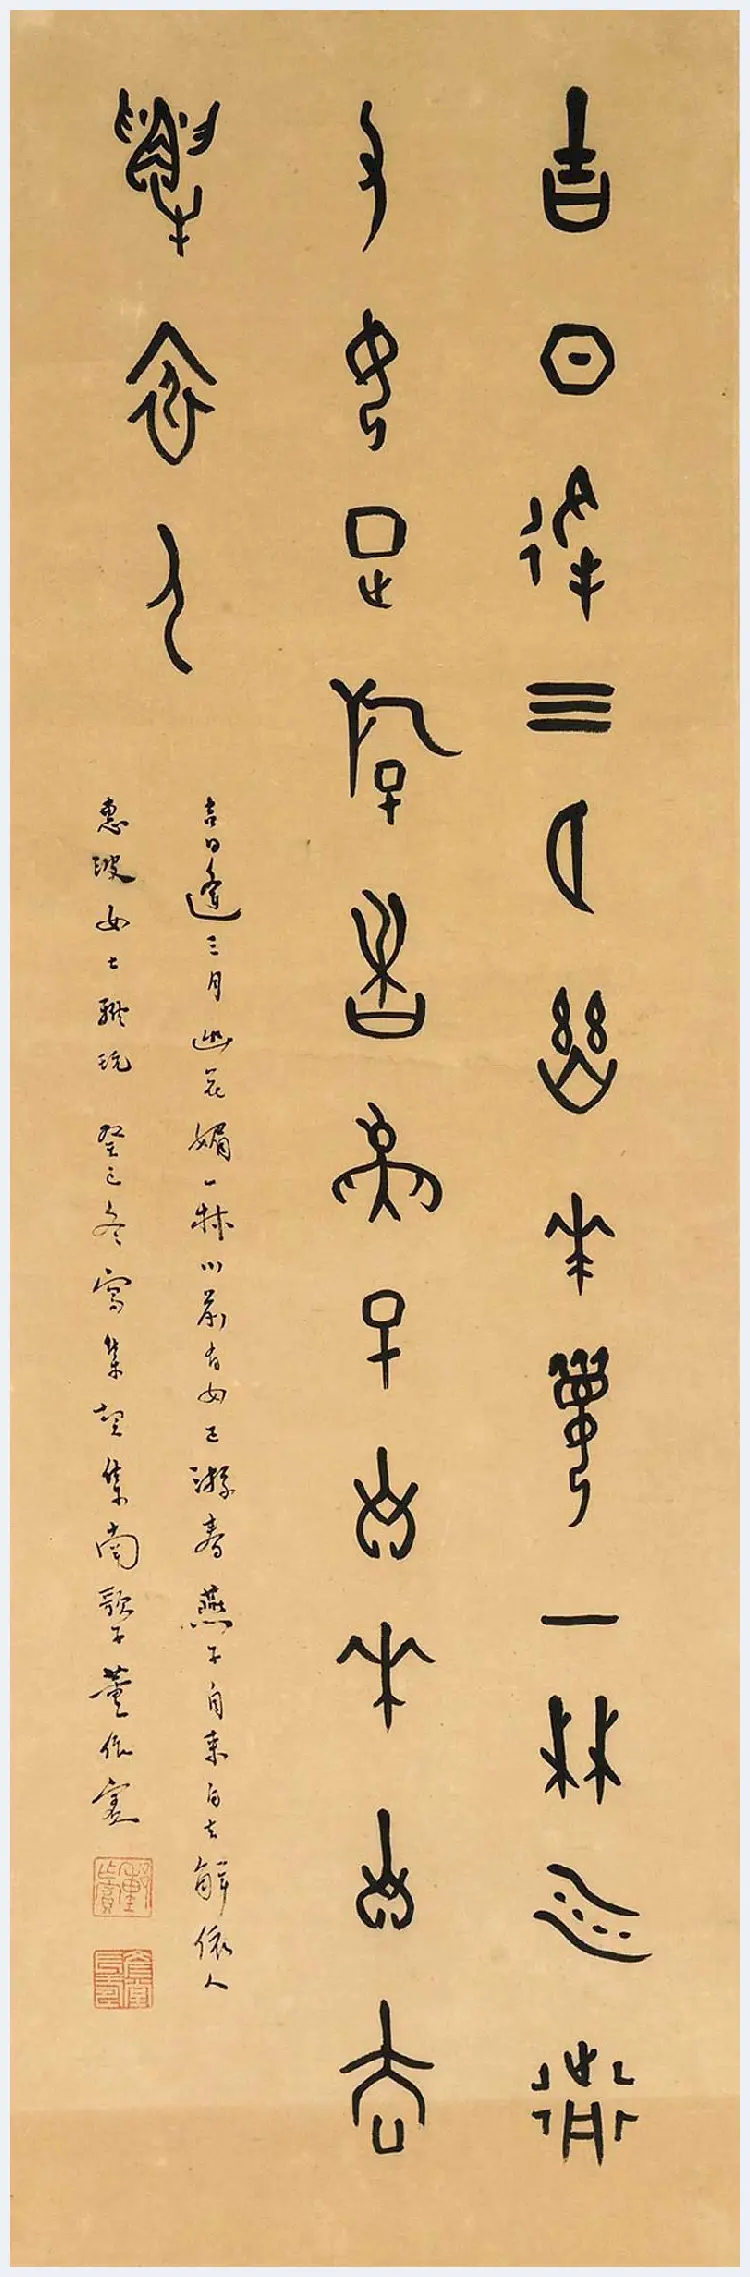 吉日逢三月幽花媚一林川前
又女正游春燕子自來自去
解依人
吉日逢三月幽花媚一林川前有女正游春燕子自來自去解依人
惠波女士雅玩 癸巳冬寫集契集南歌子董作賓